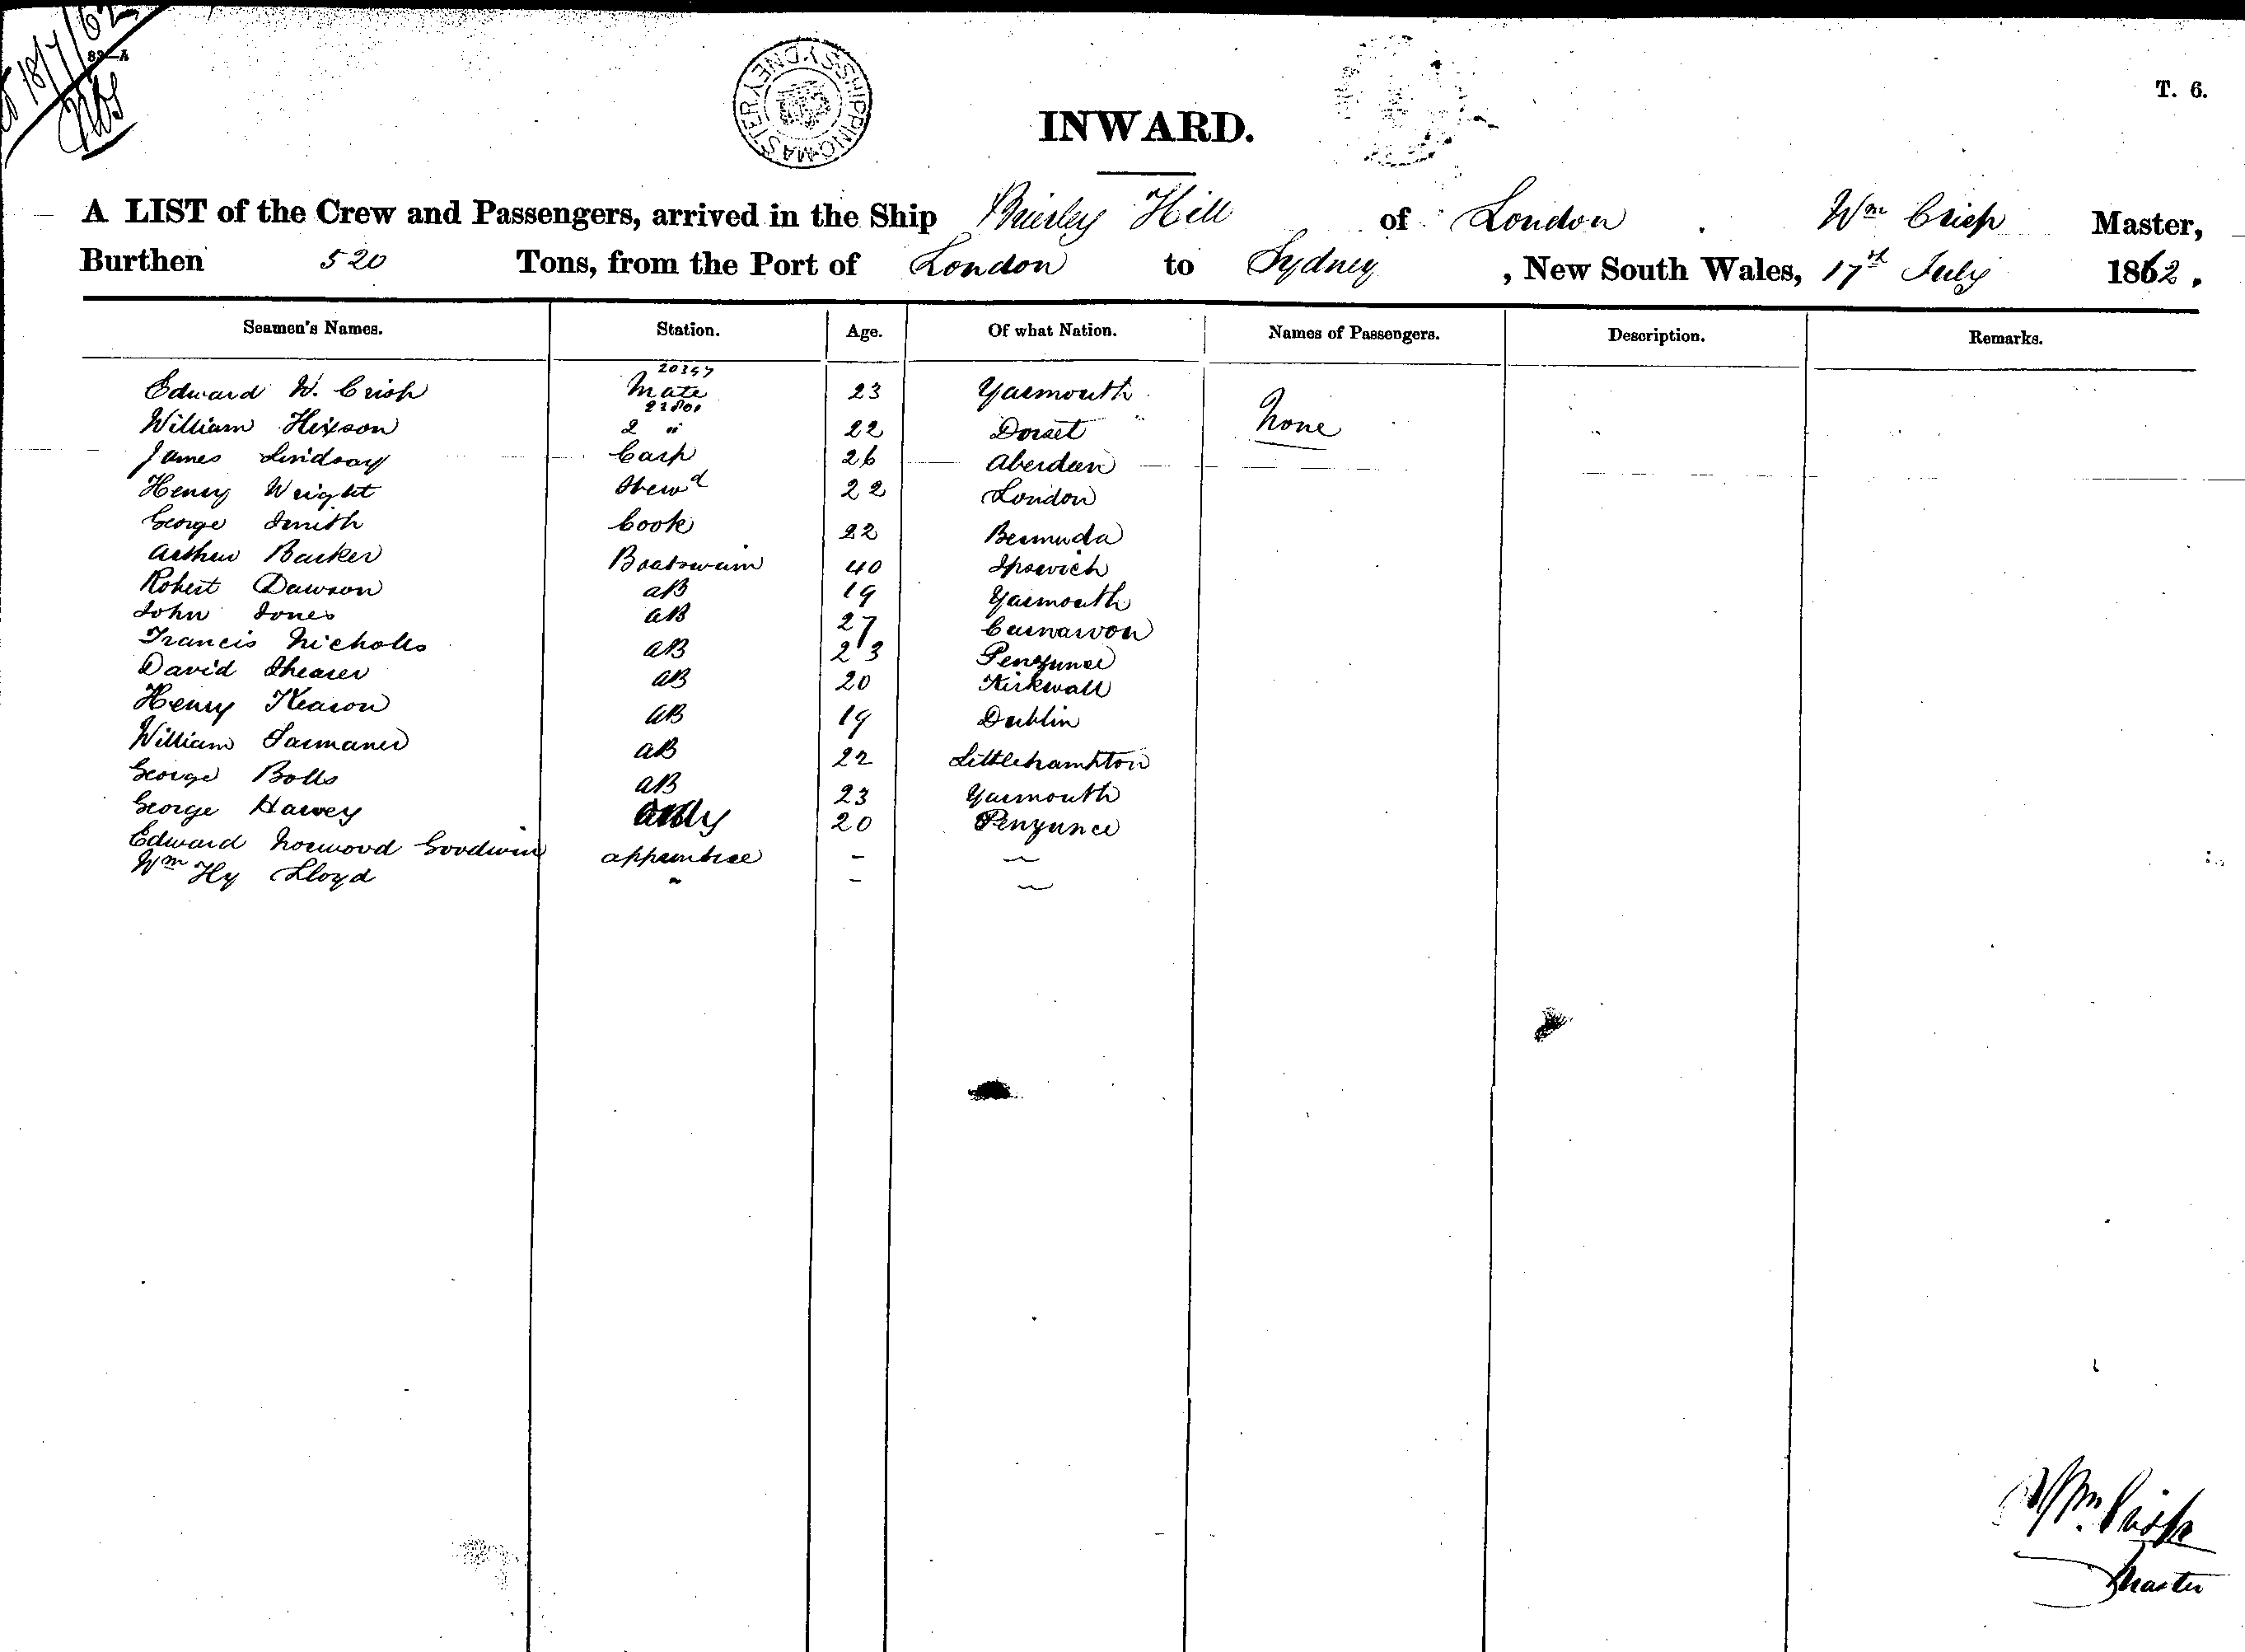 18/7/62
83—A
SHIPPING MASTER SYDNEY
T. 6.
INWARD.
A LIST of the Crew and Passengers, arrived in the Ship Brierley Hill of London Wm Crisp Master,
Burthen 520 Tons, from the Port of London to Sydney, New South Wales, 17th July 1862.
Seamen's Names. Station. Age. Of what Nation. Names of Passengers. Description. Remarks.
Edward W. Crisp Mate 23 Yarmouth None
William Hixson 2 " 22 Dorset
James Lindsay Carp 26 Aberdeen
Henry Wright Stewd 22 London
George Smith Cook 22 Bermuda
Arthur Barker Boatswain 40 Ipswich
Robert Dawson AB 19 Yarmouth
John Jones AB 27 Carnarvon
Francis Nicholls AB 23 Penzance
David Shearer AB 20 Kirkwall
Henry Kearon AB 19 Dublin
William AB 22 Littlehampton
George Bolls AB 23 Yarmouth
George Harvey 20 Penzance
Edward Norwood Goodwin apprentice – –
Wm Hy Lloyd " – –
Wm. Crisp
Master